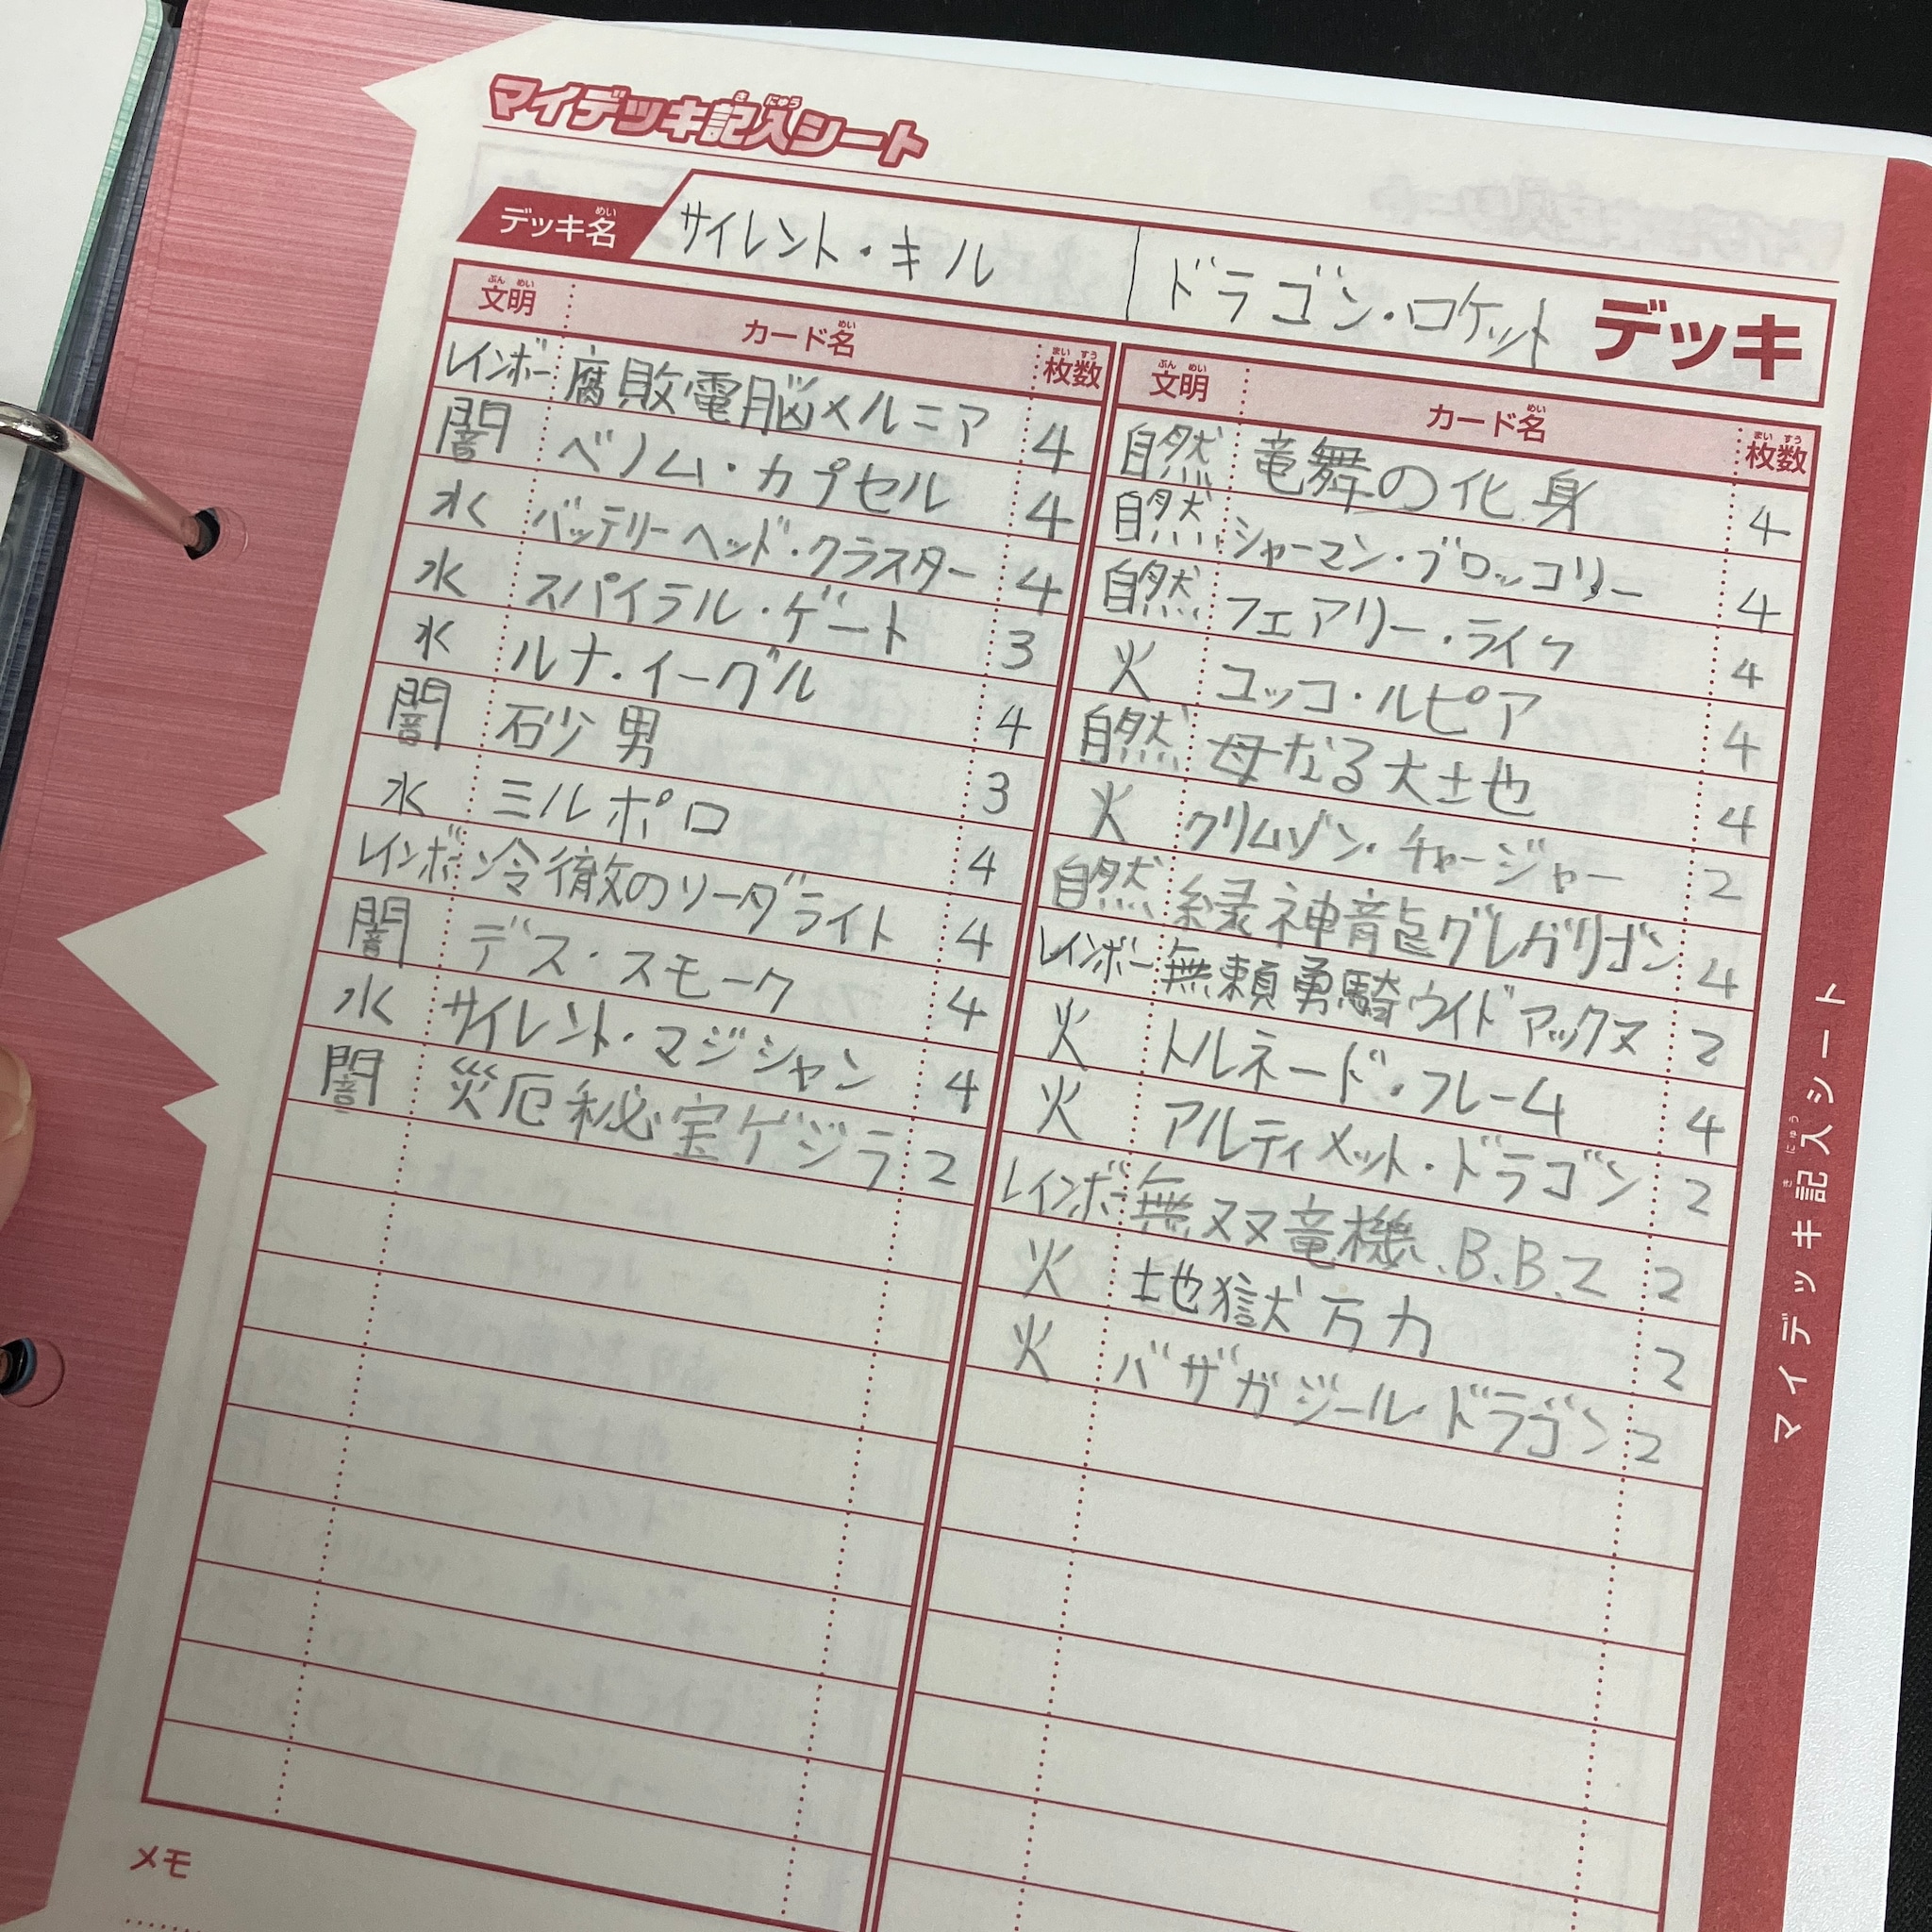 マイデッキ記入シート
デッキ名 サイレント・キル | ドラゴン・ロケット デッキ
文明 カード名 枚数
レインボー 腐敗電脳メルニア 4
闇 ベノム・カプセル 4
水 バッテリーヘッド・クラスター 4
水 スパイラル・ゲート 3
水 ルナ・イーグル 4
闇 砂男 3
水 ミルポロ 4
レインボー 冷徹のソーダライト 4
闇 デス・スモーク 4
水 サイレント・マジシャン 4
闇 災厄秘宝ゲジラ 2
文明 カード名 枚数
自然 竜舞の化身 4
自然 シャーマン・ブロッコリー 4
自然 フェアリー・ライフ 4
火 コッコ・ルピア 4
自然 母なる大地 4
火 クリムゾン・チャージャー 2
自然 緑神龍グレガリゴン 4
レインボー 無頼勇騎ウインドアックス 2
火 トルネード・フレーム 4
火 アルティメット・ドラゴン 2
レインボー 無双竜機、B、B、Z 2
火 地獄万力 2
火 バザガジール・ドラゴン 2
メモ
マイデッキ記入シート